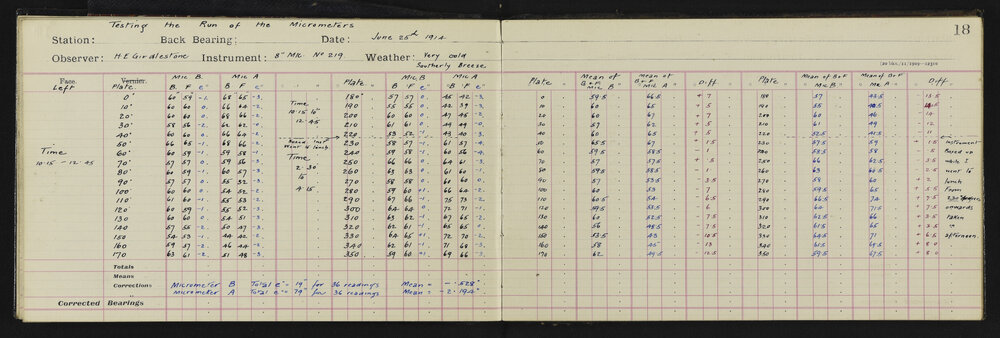 Testing the Run of the Micrometers
18
Station: Back Bearing: Date: June 25th 1914
Observer: H E Girdlestone Instrument: 8" Mic. No 219 Weather: Very cold
Southerly Breeze
Mic B. Mic A Mic B Mic A Mean of mean of Mean of B+F Mean of B+F
Face Vernier. Plate Plate B+F B+F Diff Plate Mic B Mic A Diff
Left Plate B F e" B F e" B F e" B F e" Mic B Mic A
0° 60 59 -1. 68 65 -3. 180° 57 57 0. 45 42 -3. 0 59.5 66.5 + 7 180 57 43.5 - 13.5
10° 60 60 0. 66 64 -2. Time 190 55 55 0. 42 39 -3. 10 60 65 + 5 190 55 40.5 - 14.5
20° 60 60 0. 68 66 -2. 10.15 to 200 60 60 0. 47 45 -2. 20 60 67 + 7 200 60 46 - 14
30° 58 56 -2. 62 62 0. 12.45 210 61 61 0. 30 57 62 + 5 210 61 49 - 12
40° 60 60 0. 66 64 -2. 220 53 52 -1. 43 40 -3. 40 60 65 + 5 220 52.5 41.5 - 11
50° 66 65 -1. 68 66 -2. 230 58 57 -1. 61 57 -4. 50 65.5 67 + 1.5 230 57.5 59 + 1.5 instrument
Time 60° 60 59 -1. 59 58 -1. went to lunch 240 58 58 60 56 -4. 60 59.5 58.5 - 1 240 58 - .5 Boxed up
10.15 - 12.45 70° 57 57 0. 59 56 -3. Time 250 66 66 0. 64 61 -3. 70 57 57.5 + .5 250 66 62.5 - 3.5 while I
80° 60 59 -1. 60 57 -3. 2.30 260 63 63 0. 61 60 -1. 80 59.5 58.5 - 1 260 63 60.5 - 2.5 went to
90° 57 57 0. 55 52 -3. to 270 58 58 0. 60 60 0. 90 57 53.5 - 3.5 270 58 60 + 2 lunch
100° 60 60 0. 54 52 -2. 4.15 280 59 60 +1. 66 64 -2. 100 60 53 - 7 280 59.5 65 + 5.5 From
110° 61 60 -1. 55 53 -2. 290 67 66 -1. 75 73 -2. 110 60.5 54 - 6.5 290 66.5 74 + 7.5
120° 60 59 -1. 55 52 -3. 300 64 64 0. 72 71 -1. 120 59.5 53.5 - 6 300 64 71.5 + 7.5 onwards
130 60 60 0. 54 51 -3. 310 63 62 -1. 67 65 -2. 130 60 52.5 - 7.5 310 62.5 66 + 3.5 taken
140 57 55 -2. 50 47 -3. 320 62 61 -1. 65 65 140 56 48.5 - 7.5 320 61.5 65 + 3.5 "
150 54 53 -1. 44 42 -2. 330 64 65 +1. 72 70 -2. 150 53.5 43 - 10.5 330 64.5 71 + 6.5 afternoon.
160 59 57 -2. 46 44 -2. 340 62 61 -1. 71 68 -3. 160 58 45 - 13 340 61.5 69.5 + 8.0
170 63 61 -2. 51 48 -3. 350 59 60 +1. 69 66 -3. 170 62 49.5 - 12.5 350 59.5 67.5 + 8.0
Totals
Means
Corrections Micrometer B Total e" = 19" for 36 readings Mean = - .528"
Micrometer A Total e" = 79" for 36 readings Mean = - 2.194"
Corrected Bearings